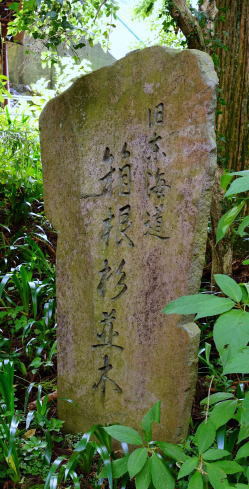 旧東海道
箱根杉並木